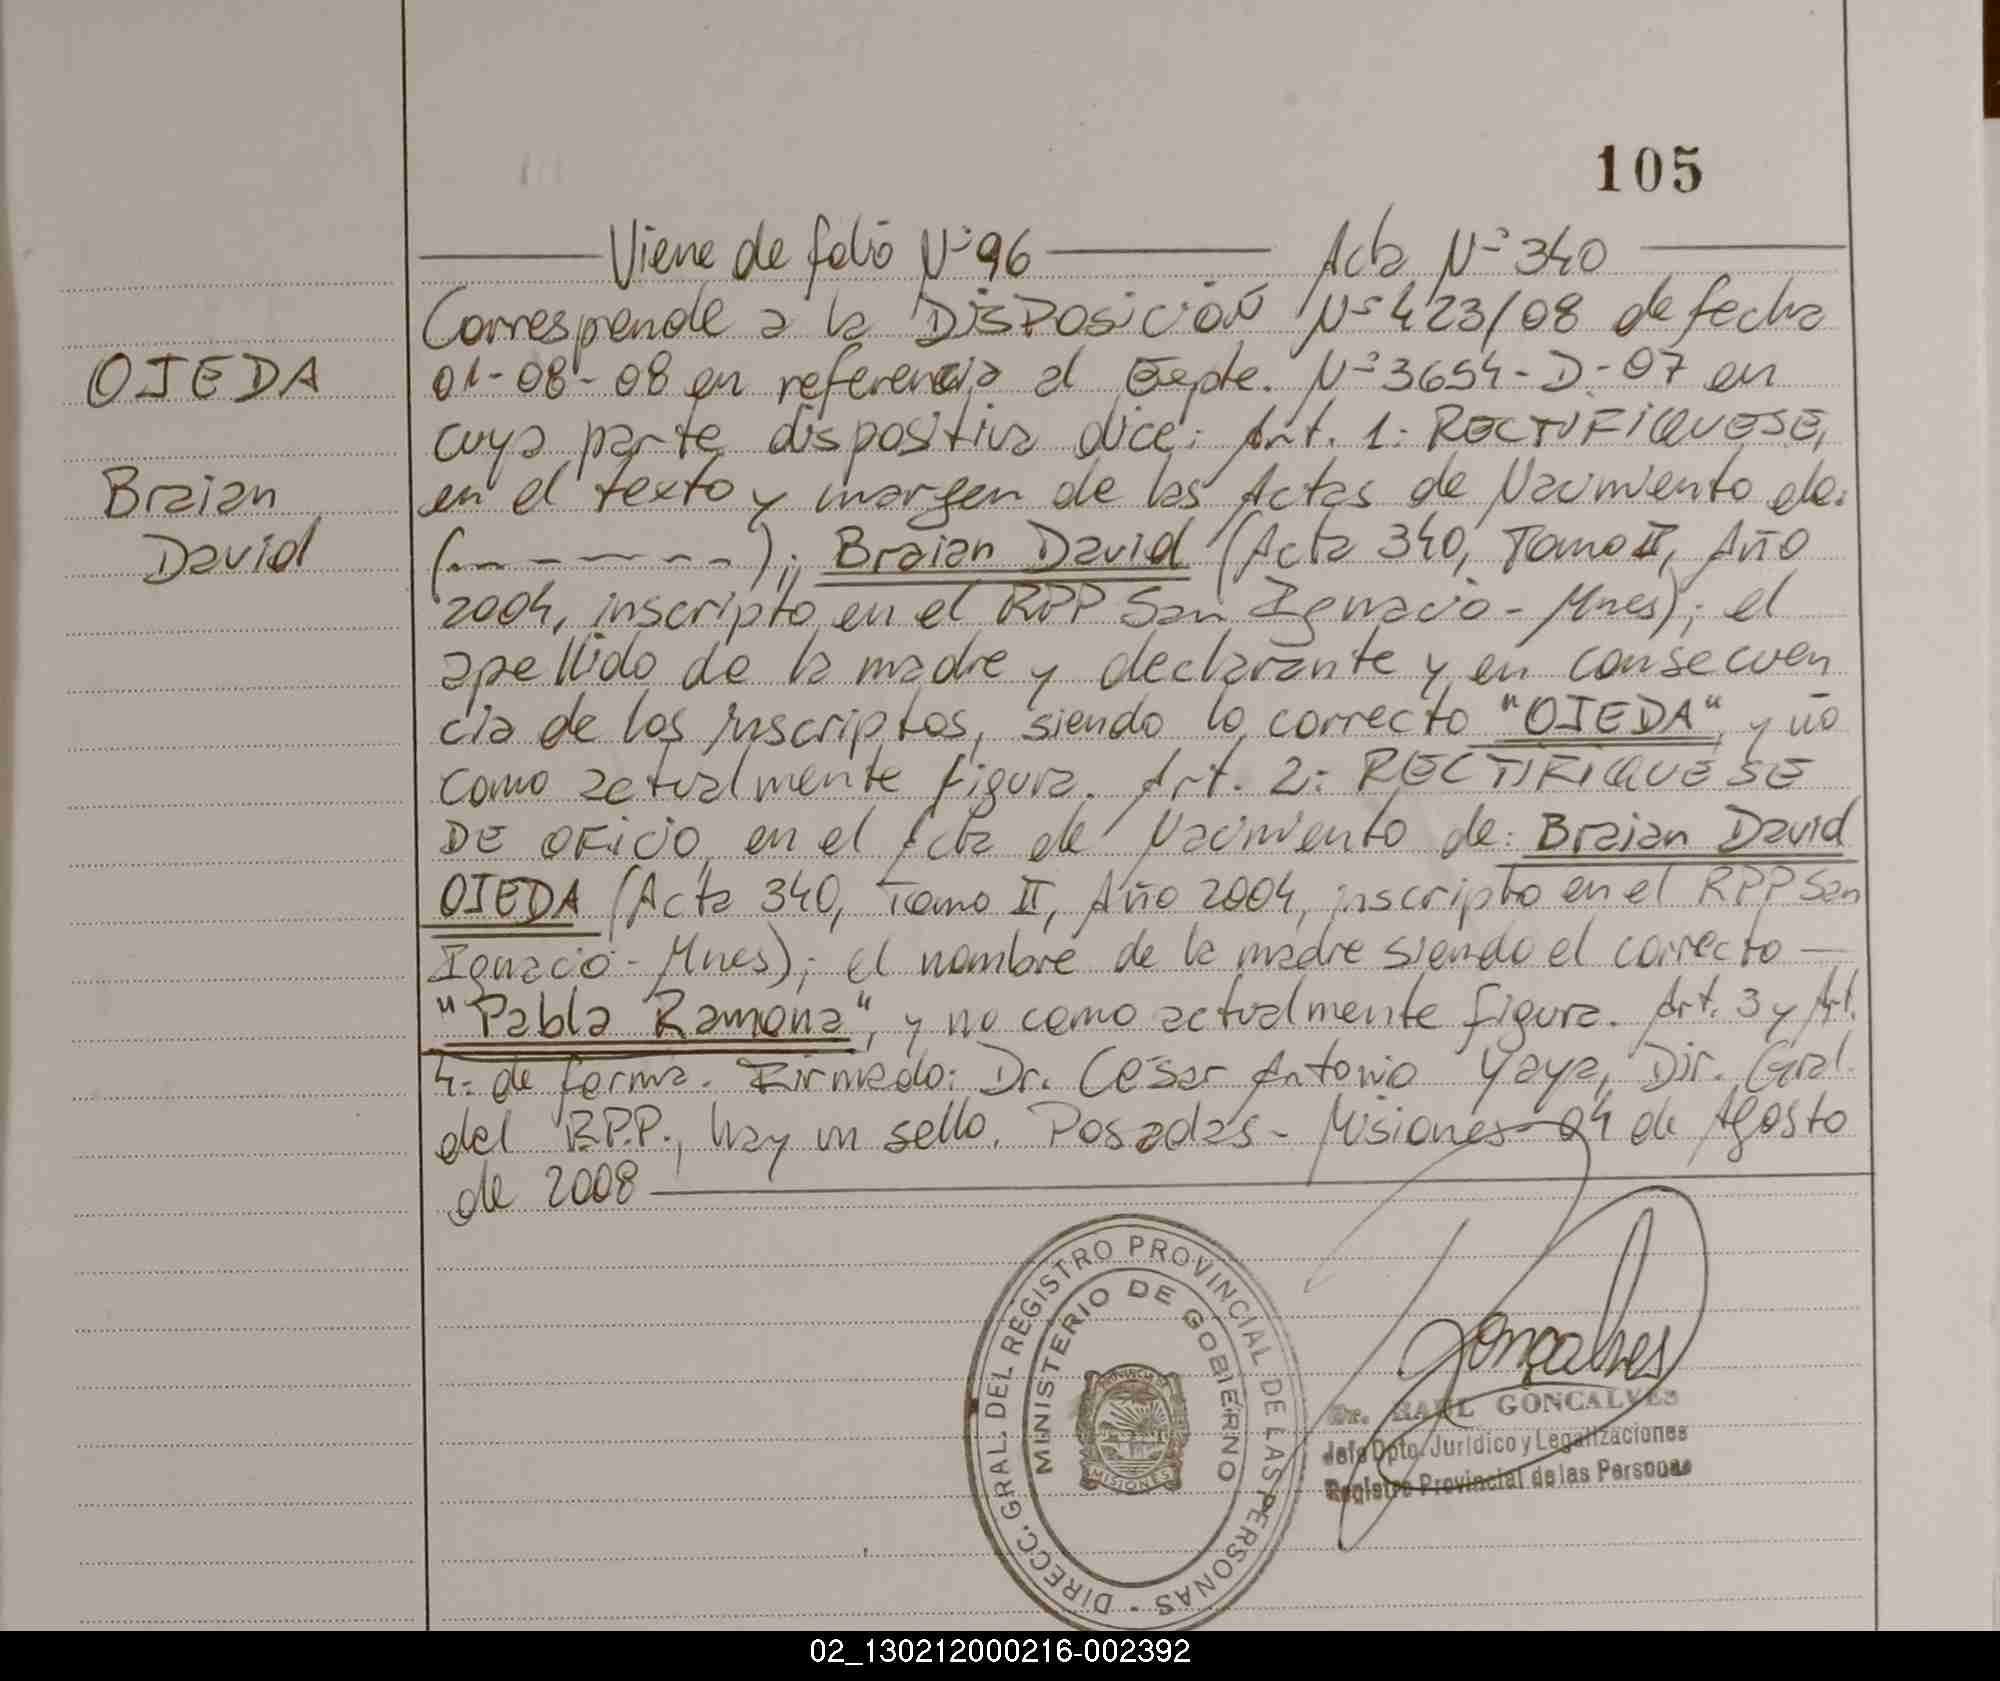 105
Viene de folio Nº 96 Acta Nº 340
Corresponde a la DISPOSICIÓN Nº 423/08 de fecha
OJEDA
01-08-08 en referencia al Expte. Nº 3654-D-07 en
cuya parte dispositiva dice: Art. 1: RECTIFIQUESE,
Braian
en el texto y margen de las Actas de Nacimiento de:
David
(-------); Braian David (Acta 340, Tomo II, Año
2004, inscripto en el RPP San Ignacio - Mnes); el
apellido de la madre y declarante y en consecuen
cia de los inscriptos, siendo lo correcto "OJEDA", y no
como actualmente figura. Art. 2: RECTIFIQUESE
DE OFICIO, en el Acta de Nacimiento de: Braian David
OJEDA (Acta 340, Tomo II, Año 2004, inscripto en el RPP San
Ignacio - Mnes); el nombre de la madre siendo el correcto —
"Pabla Ramona", y no como actualmente figura. Art. 3 y Art.
4: de forma. Firmado: Dr. César Antonio Yaya, Dir. Gral.
del R.P.P., hay un sello. Posadas - Misiones 04 de Agosto
de 2008
DIRECC. GRAL. DEL REGISTRO PROVINCIAL DE LAS PERSONAS -
MINISTERIO DE GOBIERNO
PROVINCIA DE
MISIONES
Goncalves
Dr. RAUL GONCALVES
Jefe Dpto. Jurídico y Legalizaciones
Registro Provincial de las Personas
02_130212000216-002392